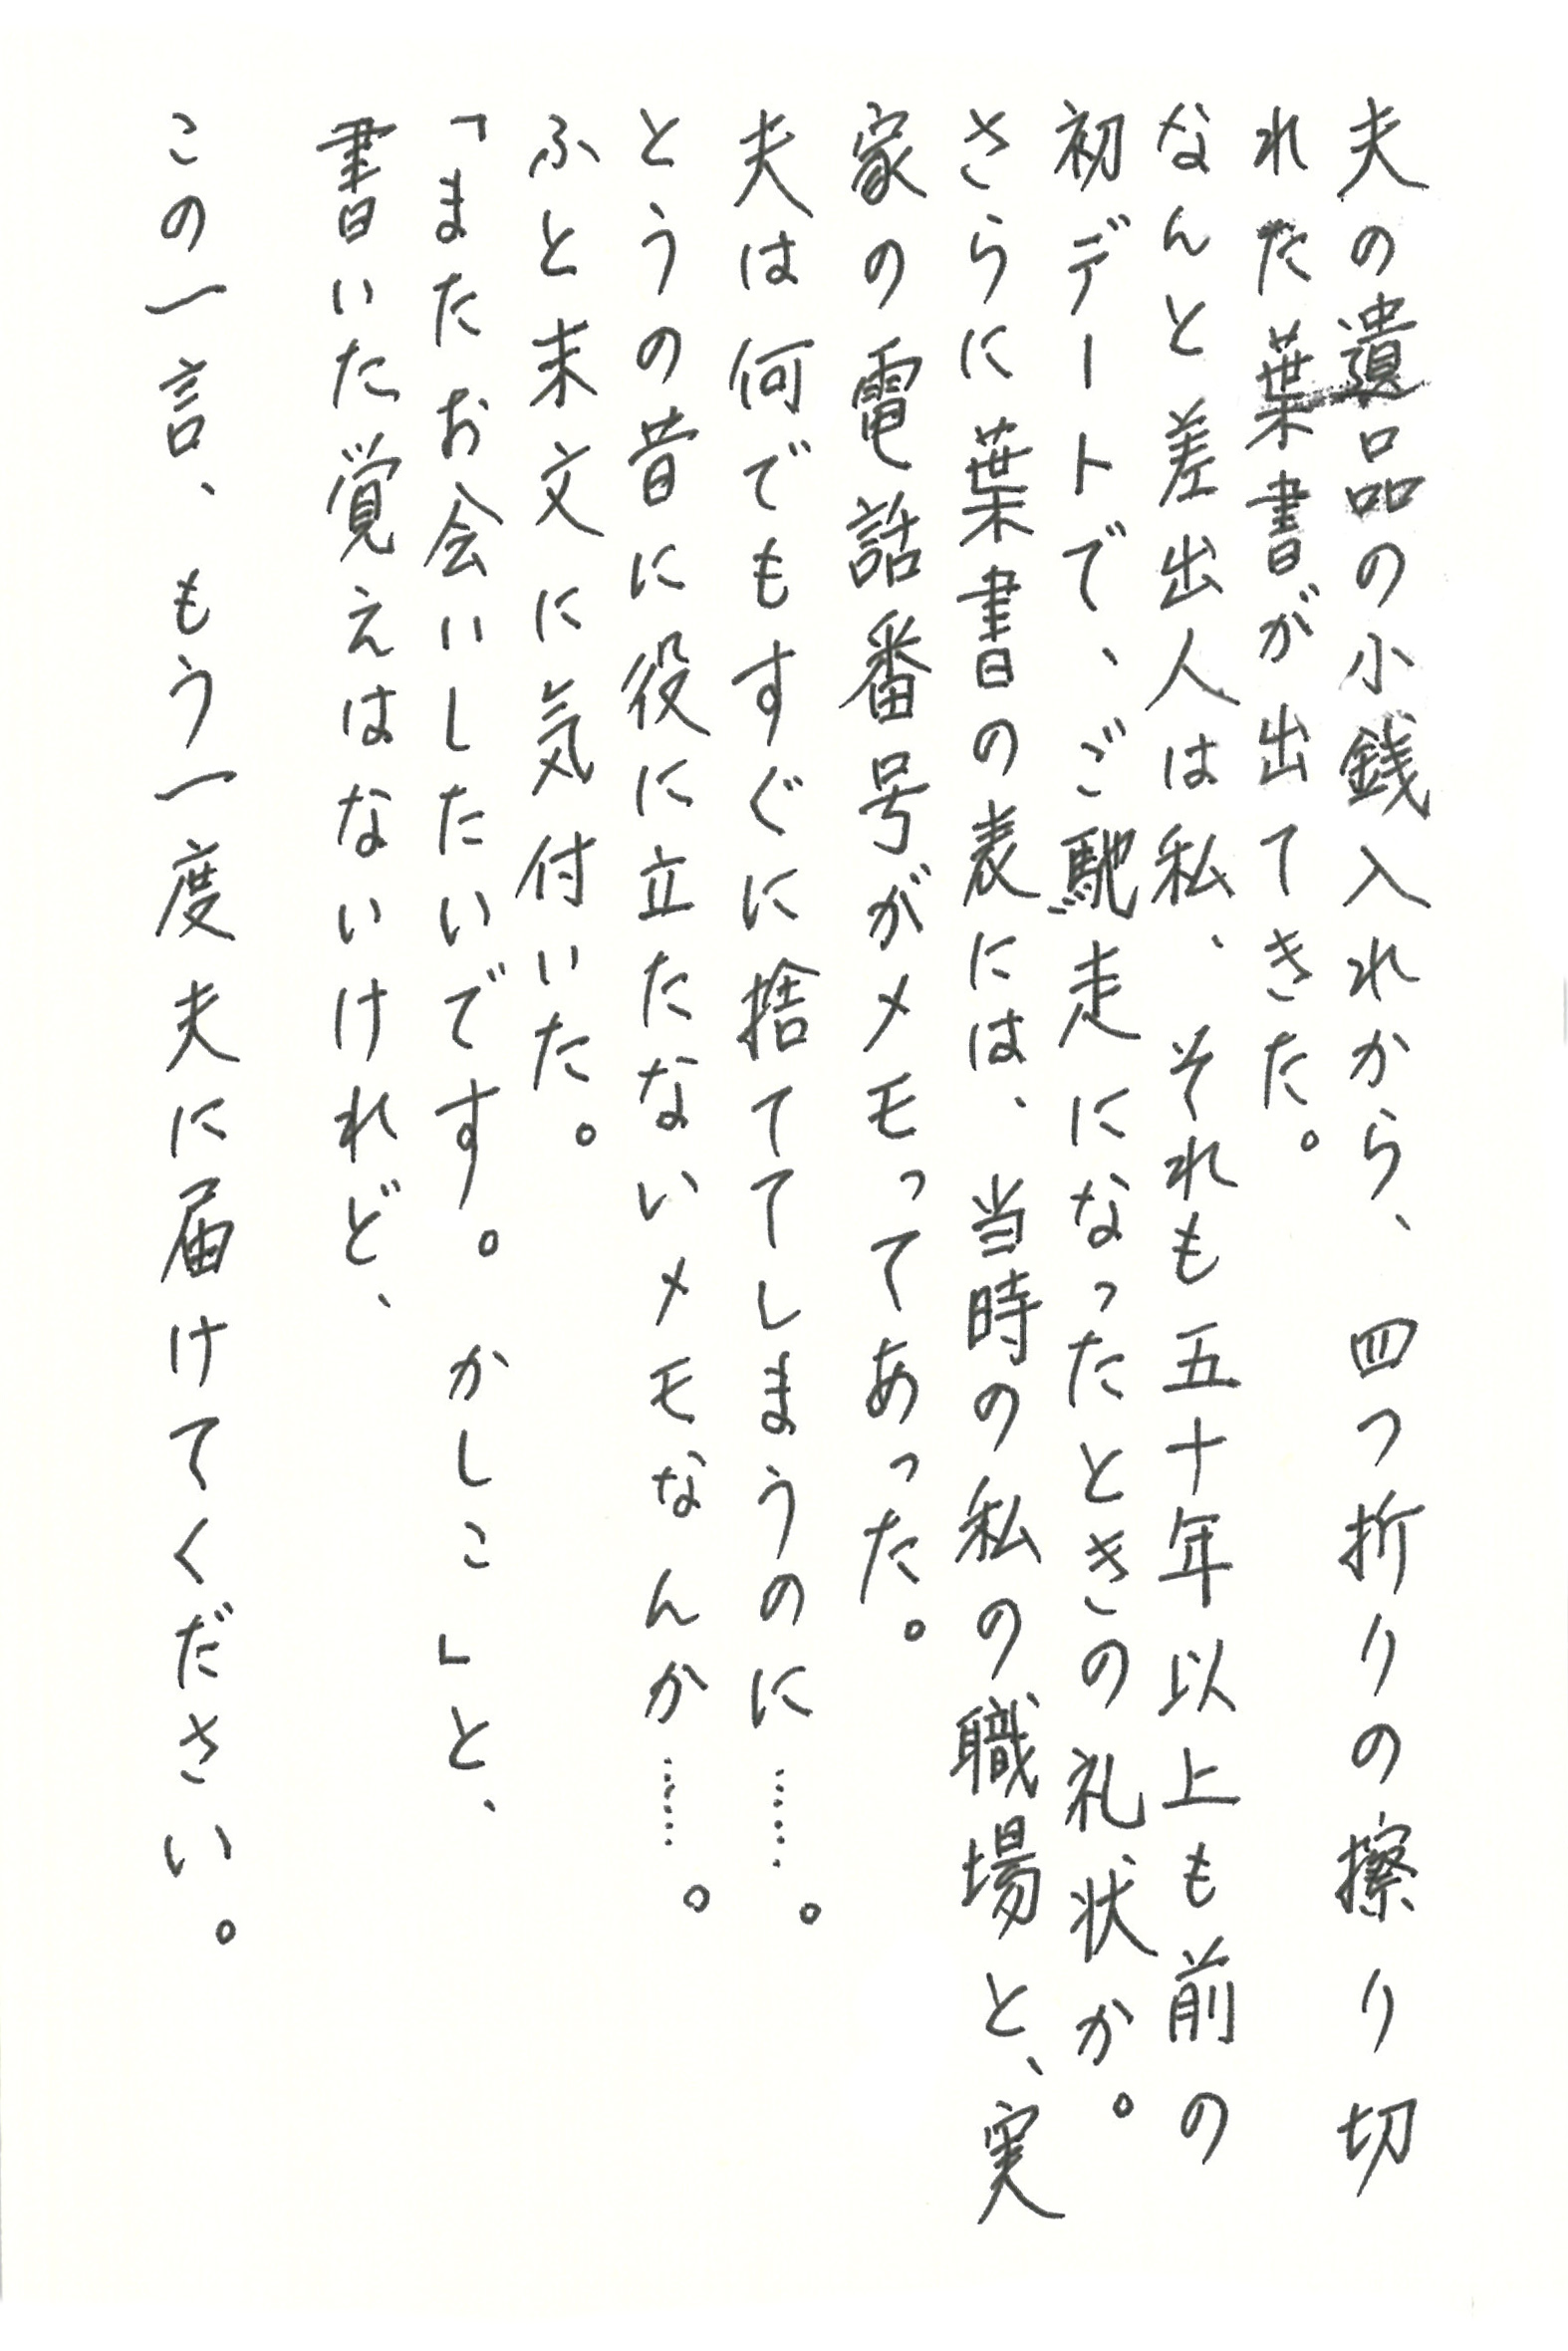 夫の遺品の小銭入れから、四つ折りの擦り切
れた葉書が出てきた。
なんと差出人は私、それも五十年以上も前の
初デートで、ご馳走になったときの礼状か。
さらに葉書の表には、当時の私の職場と、実
家の電話番号がメモってあった。
夫は何でもすぐに捨ててしまうのに……。
とうの昔に役に立たないメモなんか……。
ふと末文に気付いた。
「またお会いしたいです。かしこ」と、
書いた覚えはないけれど、
この一言、もう一度夫に届けてください。